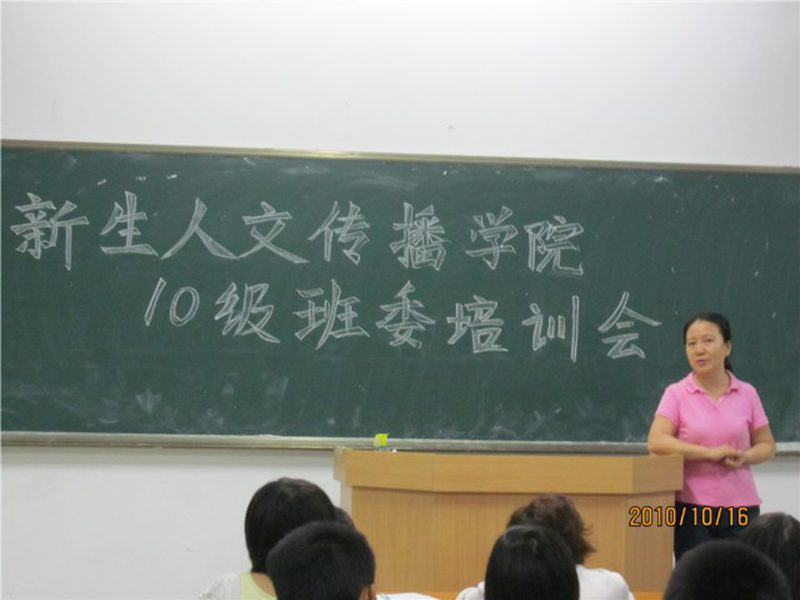 新生人文传播学院
10级班委培训会
2010/10/16